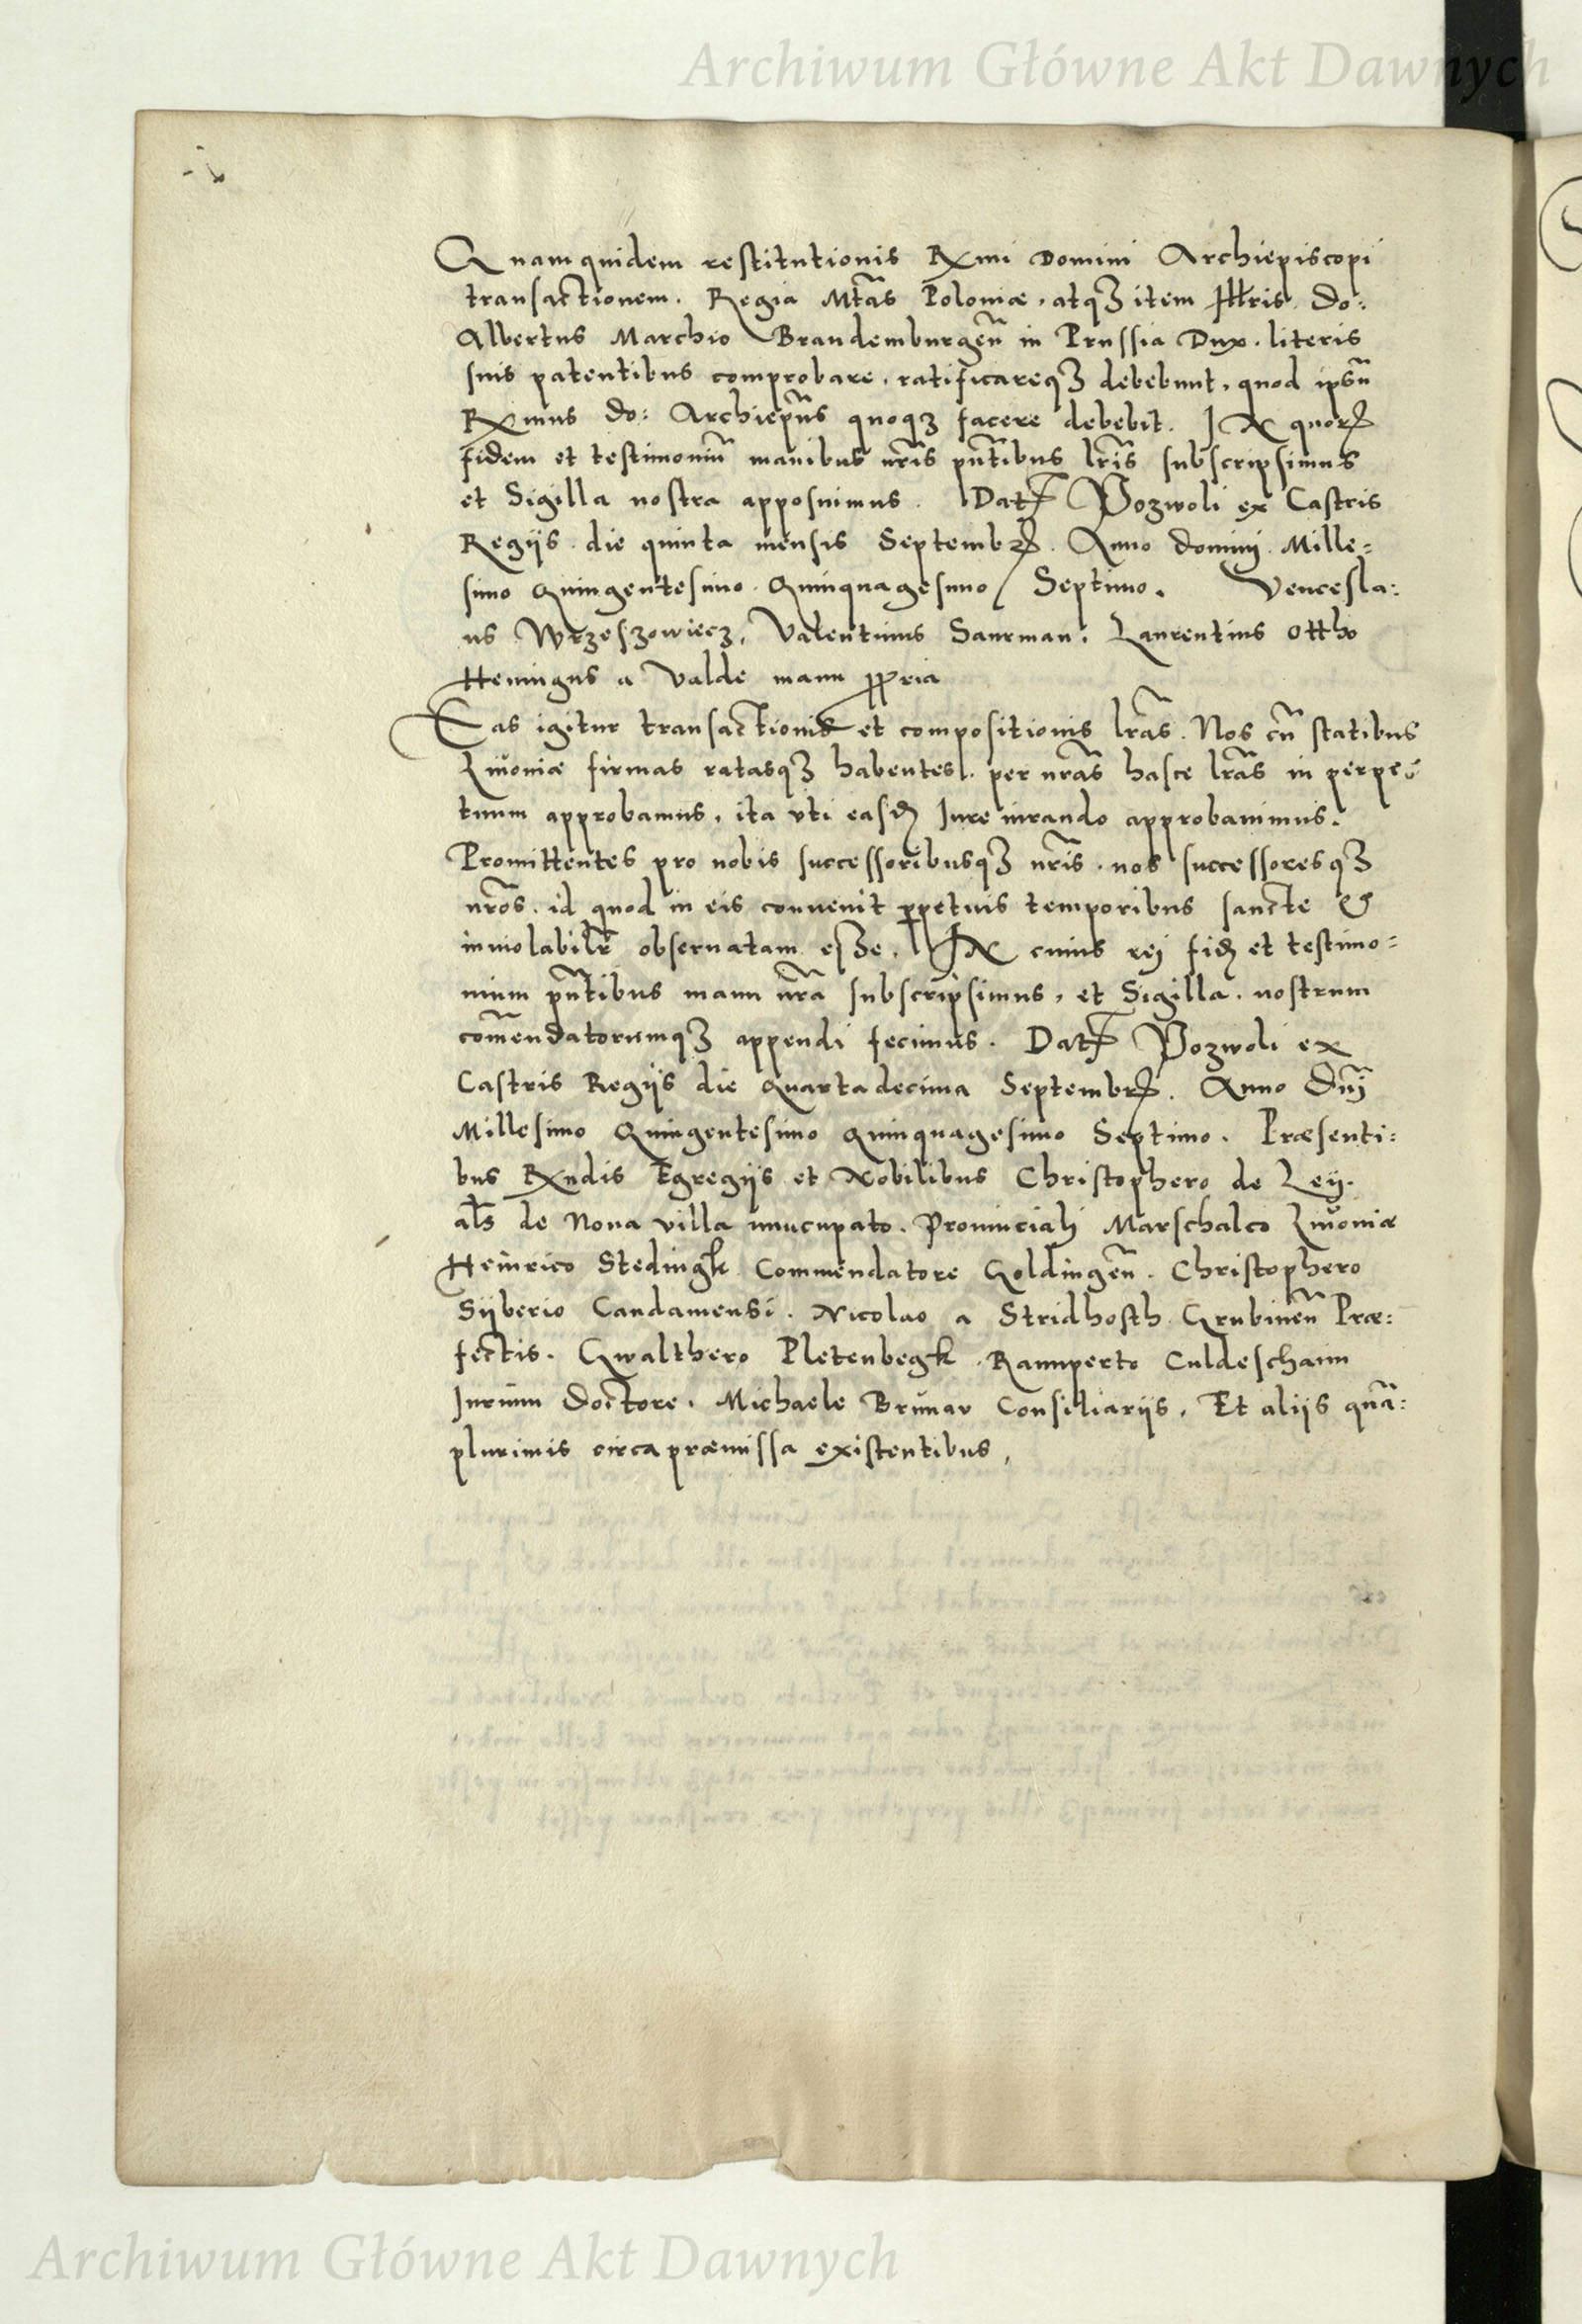 Archiwum Główne Akt Dawnych
Quam quidem restitutionis Rxmi Domini Archiepiscopi
transactionem. Regia Mtas Poloniæ, atqꝫ item Illris Do:
Albertus Marchio Brandemburgeñ in Prussia Dux. literis
suis patentibus comprobare, ratificareqꝫ debebunt, quod ipsũ
Rxmus Do: Archiepũs quoqꝫ facere debebit. In quorꝝ
fidem et testimoniũ manibus nr̃is pñtibus lr̃is subscripsimus
et Sigilla nostra apposuimus. Datꝭ Pozwoli ex Castris
Regijs die quinta mensis Septembrꝭ. Anno Dominj Mille=
simo Quingentesimo Quinquagesimo Septimo. Vencesla:
us Wrzeszowiecz, Valentinus Saurman, Laurentius Ottho
Heningus a Valde manu ꝓpria
Eas igitur transactionis et compositionis lr̃as. Nos cũ statibus
Liuoniæ firmas ratasqꝫ habentes. per nr̃as hasce lr̃as in perpe=
tuum approbamus, ita vti easd̃ Iureiurando approbauimus.
Promittentes pro nobis successoribusqꝫ nr̃is. nos successoresqꝫ
nr̃os. id quod in eis conuenit ꝑpetuis temporibus sancte &
inuiolabilr̃ obseruatam esse. In cuius rej fid̃ et testimo=
nium pñtibus manu nr̃a subscripsimus, et Sigilla. nostrum
com̃endatorumqꝫ appendi fecimus. Datꝭ Pozwoli ex
Castris Regijs die Quarta decima Septembrꝭ. Anno Dñj
Millesimo Quingentesimo Quinquagesimo Septimo. Præsenti:
bus Rxndis Egregijs et Nobilibus Christophero de Leÿ.
als de Noua villa nuncupato. Prouincialj Marschalco Liuoniæ
Heinrico Stedingk Commendatore Goldingeñ. Christophero
Sÿberio Candamensi. Nicolao a Stridhosth Grubineñ Præ:
fectis. Gwalthero Pletenbegk. Ramperto Culdeschaim
Iurium Doctore. Michaele Brunav Consiliarijs. Et alijs quã:
plurimis circa præmissa existentibus,
Archiwum Główne Akt Dawnych